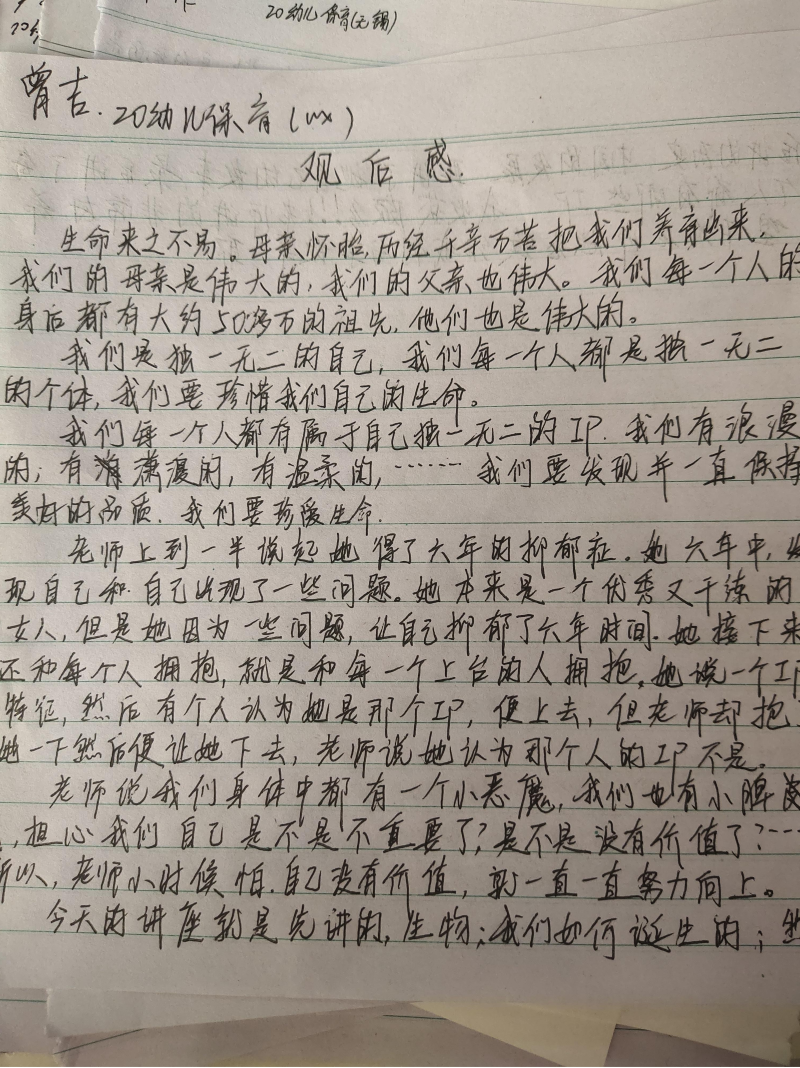 20幼儿保育(无锡)
曾吉. 20幼儿保育(wx)
观后感.
生命来之不易。母亲怀胎,历经千辛万苦把我们养育出来,
我们的母亲是伟大的,我们的父亲也伟大。我们每一个人的
身后都有大约50多万的祖先,他们也是伟大的。
我们是独一无二的自己,我们每一个人都是独一无二
的个体,我们要珍惜我们自己的生命。
我们每一个人都有属于自己独一无二的IP.我们有浪漫
的;有潇洒的,有温柔的,……我们要发现并一直保持
美好的品质.我们要珍爱生命.
老师上到一半说起她得了六年的抑郁症。她六年中,发
现自己和自己出现了一些问题。她本来是一个优秀又干练的
女人,但是她因为一些问题,让自己抑郁了六年时间.她接下来
还和每个人拥抱,就是和每一个上台的人拥抱。她说一个IP
特征,然后有个人认为她是那个IP,便上去,但老师却抱了
她一下然后便让她下去,老师说她认为那个人的IP不是。
老师说我们身体中都有一个小恶魔,我们也有小脾
,担心我们自己是不是不重要了?是不是没有价值了?…
所以,老师小时候怕.自己没有价值,就一直一直努力向上。
今天的讲座就是先讲的,生物;我们如何诞生的;